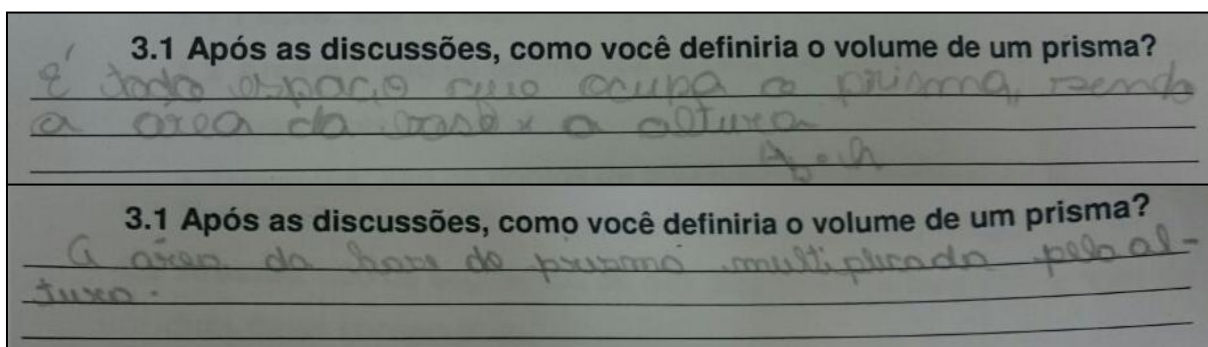 3.1 Após as discussões, como você definiria o volume de um prisma?
É todo espaço que ocupa o prisma, sendo
a área da base x a altura
Ab.h
3.1 Após as discussões, como você definiria o volume de um prisma?
A área da base do prisma multiplicada pela al-
tura.